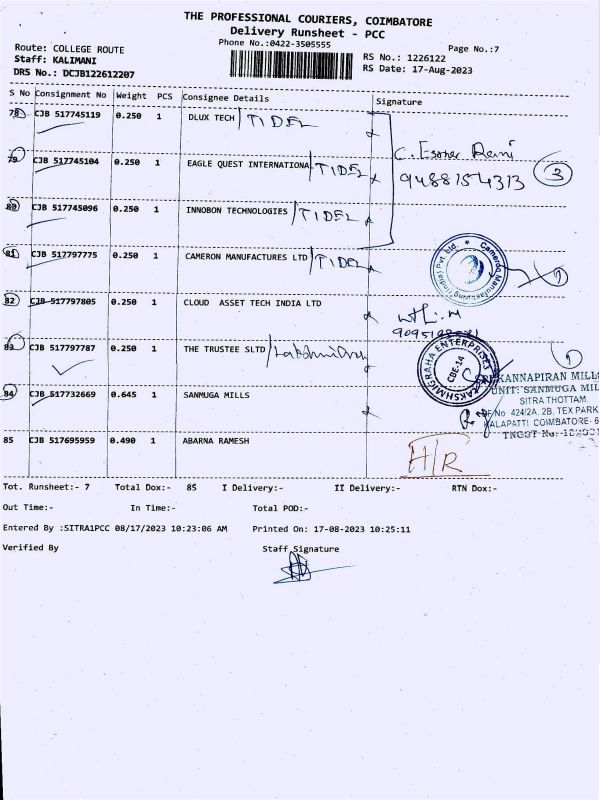 THE PROFESSIONAL COURIERS, COIMBATORE
Delivery Runsheet - PCC
Phone No.:0422-3505555
Page No.:7
Route: COLLEGE ROUTE
Staff: KALIMANI
DRS No.: DCJB122612207
RS No.: 1226122
RS Date: 17-Aug-2023
S No Consignment No Weight PCS Consignee Details Signature
78 CJB 517745119 0.250 1 DLUX TECH TIDEL
79 CJB 517745104 0.250 1 EAGLE QUEST INTERNATIONA TIDEL
9488154313 3
80 CJB 517745096 0.250 1 INNOBON TECHNOLOGIES TIDEL
81 CJB 517797775 0.250 1 CAMERON MANUFACTURES LTD TIDEL
82 CJB 517797805 0.250 1 CLOUD ASSET TECH INDIA LTD
83 CJB 517797787 0.250 1 THE TRUSTEE SLTD
LAKSHMIGRAHA ENTERPRISES
CBE-14
84 CJB 517732669 0.645 1 SANMUGA MILLS
KANNAPIRAN MILLS
UNIT: SANMUGA MIL
SITRA THOTTAM,
SF No 424/2A, 2B, TEX PARK
KALAPATTI COIMBATORE- 6
85 CJB 517695959 0.490 1 ABARNA RAMESH H/R
Tot. Runsheet:- 7 Total Dox:- 85 I Delivery:- II Delivery:- RTN Dox:-
Out Time:- In Time:- Total POD:-
Entered By :SITRA1PCC 08/17/2023 10:23:06 AM Printed On: 17-08-2023 10:25:11
Verified By Staff Signature